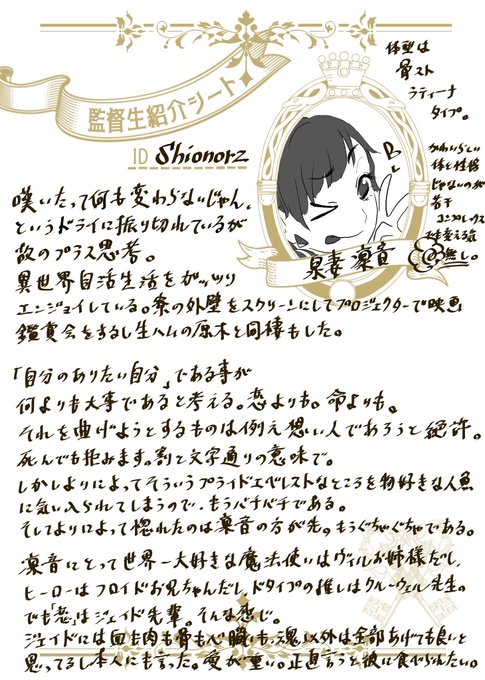 監督生紹介シート
ID Shionorz
体型は
骨スト
ラティーナ
タイプ。
かわいらしい
体と性格
じゃないのが
若干
コンプレックス
だが変える気
無し。
B
泉妻 凛音
嘆いたって何も変わらないじゃん、
というドライに振り切れているが
故のプラス思考。
異世界自活生活をガッツリ
エンジョイしている。寮の外壁をスクリーンにしてプロジェクターで映画
鑑賞会をするし生ハムの原木と同棲もした。
「自分のありたい自分」である事が
何よりも大事であると考える。恋よりも。命よりも。
それを曲げようとするものは例え想い人であろうと絶許。
死んでも拒みます。割と文字通りの意味で。
しかしよりによってそういうプライドエベレストなところを物好きな人魚
に気に入られてしまうので、もうバチバチである。
そしてよりによって惚れたのは凛音の方が先。もうぐちゃぐちゃである。
凛音にとって世界一大好きな魔法使いはヴィルお姉様だし、
ヒーローはフロイドお兄ちゃんだし、ドタイプの推しはクルーウェル先生。
でも「恋」はジェイド先輩。そんな感じ。
ジェイドには血も肉も骨も心臓も、魂以外は全部あげても良いと
思ってるし本人にも言った。愛が重い。正直言うと彼に食べられたい。